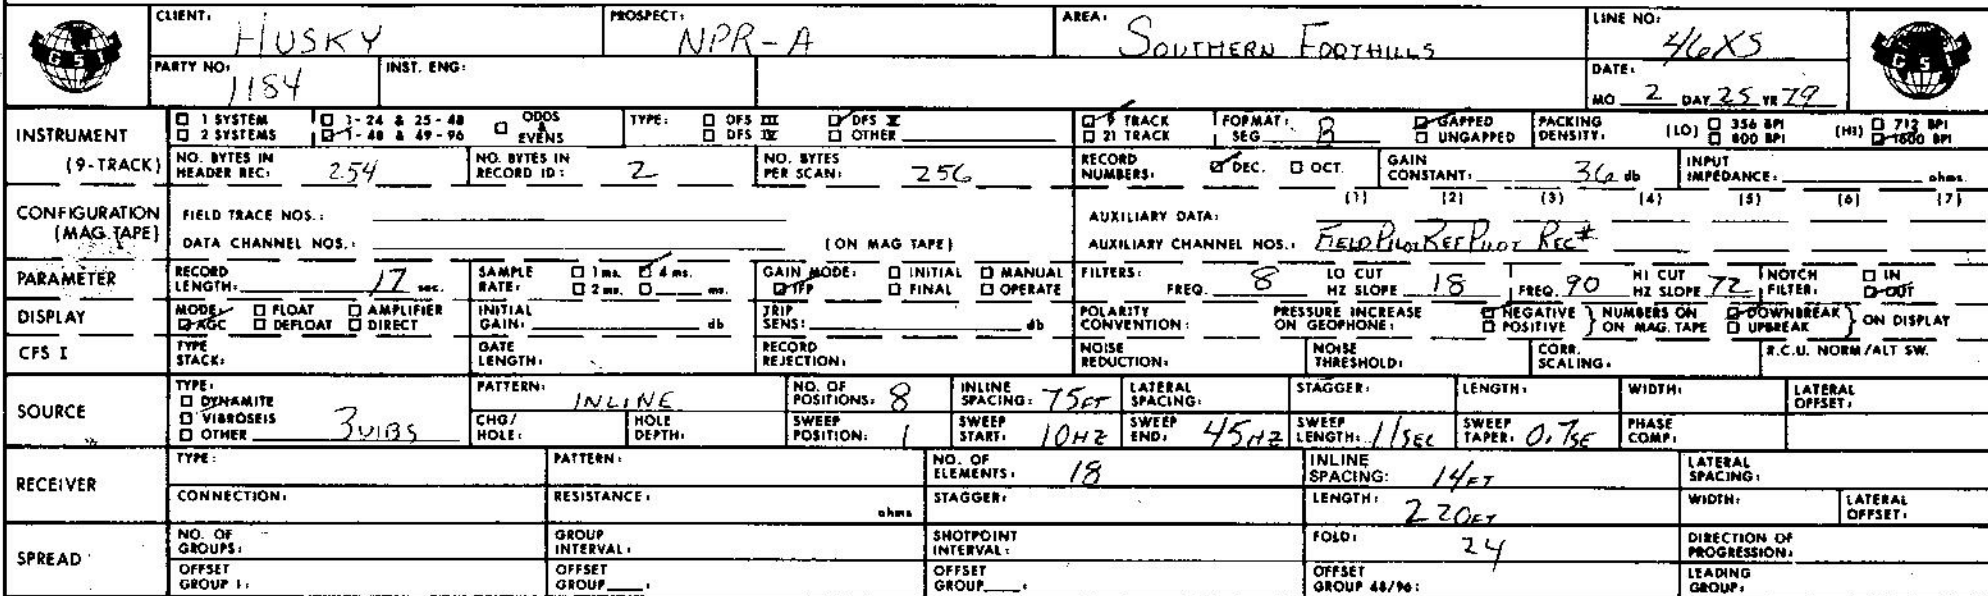 CLIENT: HUSKY PROSPECT: NPR-A AREA: SOUTHERN FOOTHILLS LINE NO: 46XS
GSI PARTY NO: 1184 INST. ENG: DATE: MO 2 DAY 25 YR 79 GSI
INSTRUMENT (9-TRACK) □ 1 SYSTEM □ 1-24 & 25-48 □ ODDS & EVENS TYPE: □ DFS III ☑ DFS V ☑ 9 TRACK FORMAT: SEG B ☑ GAPPED PACKING DENSITY: (LO) □ 356 BPI (HI) □ 712 BPI
□ 2 SYSTEMS ☑ 1-48 & 49-96 □ DFS IV □ OTHER □ 21 TRACK □ UNGAPPED □ 800 BPI ☑ 1600 BPI
NO. BYTES IN HEADER REC: 254 NO. BYTES IN RECORD ID: 2 NO. BYTES PER SCAN: 256 RECORD NUMBERS: ☑ DEC. □ OCT. GAIN CONSTANT: 36 db INPUT IMPEDANCE: ohms.
(1) (2) (3) (4) (5) (6) (7)
CONFIGURATION (MAG. TAPE) FIELD TRACE NOS.: AUXILIARY DATA:
DATA CHANNEL NOS.: (ON MAG TAPE) AUXILIARY CHANNEL NOS.: FIELD PILOT REF PILOT REC#
PARAMETER RECORD LENGTH: 17 sec. SAMPLE RATE: □ 1 ms. ☑ 4 ms. □ 2 ms. □ ms. GAIN MODE: □ INITIAL □ MANUAL ☑ IFP □ FINAL □ OPERATE FILTERS: FREQ. 8 LO CUT HZ SLOPE 18 FREQ. 90 HI CUT HZ SLOPE 72 NOTCH FILTER: □ IN ☑ OUT
DISPLAY MODE: □ FLOAT □ AMPLIFIER ☑ AGC □ DEFLOAT □ DIRECT INITIAL GAIN: db TRIP SENS: db POLARITY CONVENTION: PRESSURE INCREASE ON GEOPHONE: ☑ NEGATIVE □ POSITIVE } NUMBERS ON ON MAG. TAPE ☑ DOWNBREAK □ UPBREAK } ON DISPLAY
CFS I TYPE STACK: GATE LENGTH: RECORD REJECTION: NOISE REDUCTION: NOISE THRESHOLD: CORR. SCALING: R.C.U. NORM/ALT SW.
SOURCE TYPE: □ DYNAMITE □ VIBROSEIS □ OTHER 3 VIBS PATTERN: INLINE NO. OF POSITIONS: 8 INLINE SPACING: 75 FT LATERAL SPACING: STAGGER: LENGTH: WIDTH: LATERAL OFFSET:
CHG/HOLE: HOLE DEPTH: SWEEP POSITION: 1 SWEEP START: 10HZ SWEEP END: 45HZ SWEEP LENGTH: 11 SEC SWEEP TAPER: 0.7SE PHASE COMP:
RECEIVER TYPE: PATTERN: NO. OF ELEMENTS: 18 INLINE SPACING: 14 FT LATERAL SPACING:
CONNECTION: RESISTANCE: ohms STAGGER: LENGTH: 220 FT WIDTH: LATERAL OFFSET:
SPREAD NO. OF GROUPS: GROUP INTERVAL: SHOTPOINT INTERVAL: FOLD: 24 DIRECTION OF PROGRESSION:
OFFSET GROUP 1: OFFSET GROUP ___: OFFSET GROUP ___: OFFSET GROUP 48/96: LEADING GROUP: